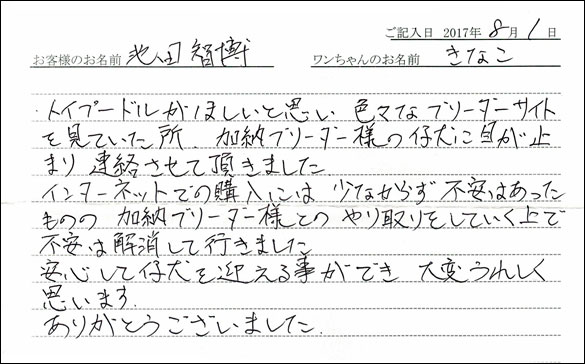 ご記入日 2017年 8月 1日
お客様のお名前 池田智博 ワンちゃんのお名前 きなこ
トイプードルがほしいと思い 色々なブリーダーサイト
を見ていた所、加納ブリーダー様の仔犬に目が止
まり 連絡させて頂きました
インターネットでの購入には 少なからず 不安はあった
ものの 加納ブリーダー様とのやり取りをしていく上で
不安は解消して行きました
安心して仔犬を迎える事ができ 大変うれしく
思います.
ありがとうございました.